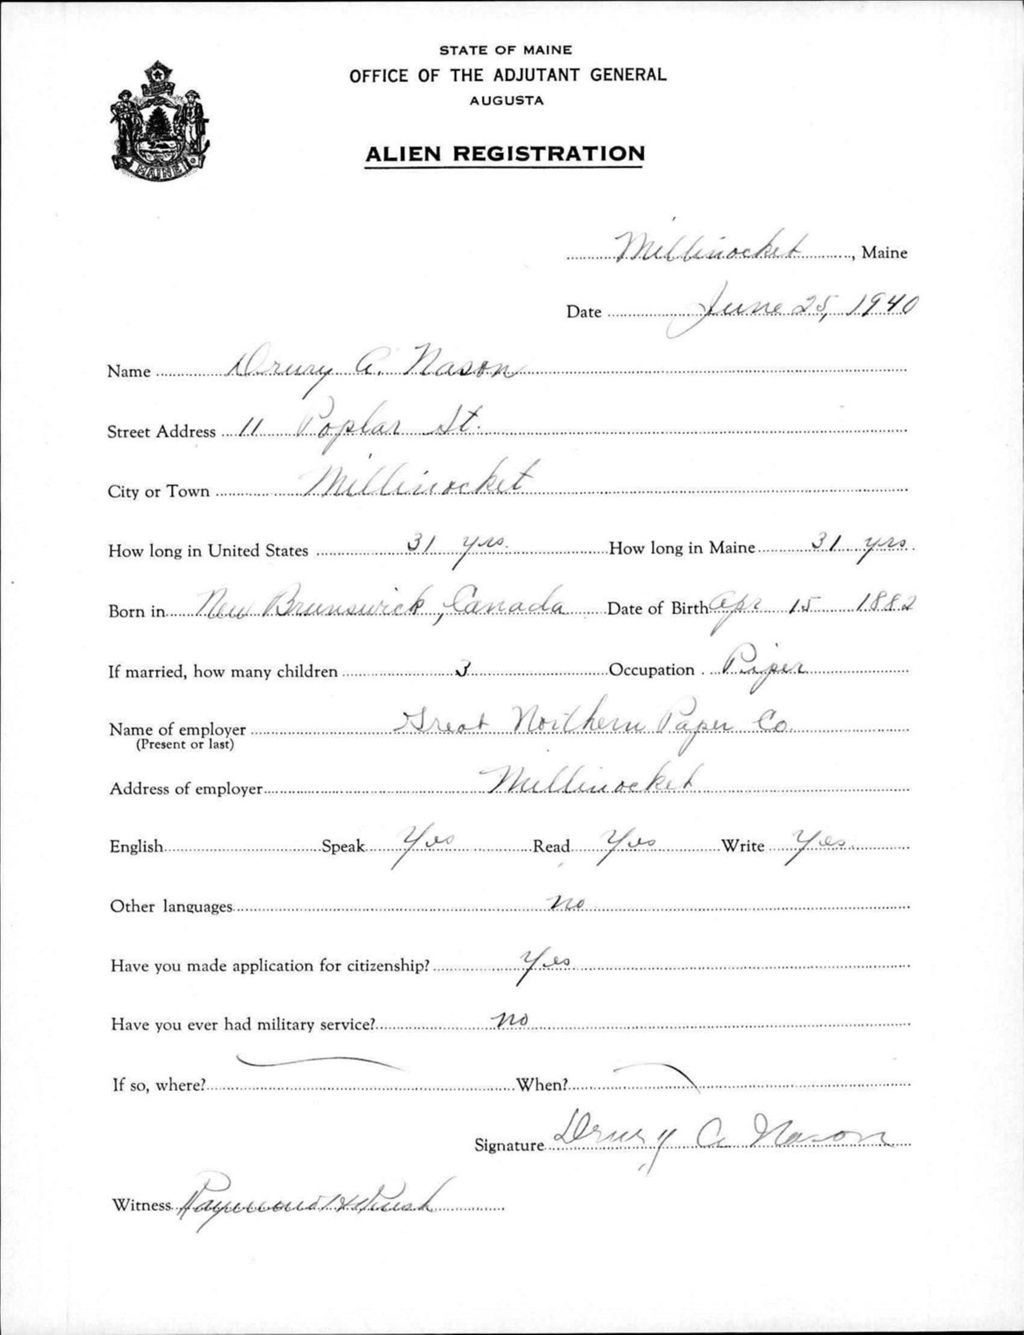 STATE OF MAINE
OFFICE OF THE ADJUTANT GENERAL
AUGUSTA
ALIEN REGISTRATION
MAINE
Millinocket, Maine
Date June 25, 1940
Name Drury A. Nason
Street Address 11 Poplar St.
City or Town Millinocket
How long in United States 31 yrs. How long in Maine 31 yrs.
Born in New Brunswick, Canada Date of Birth Apr 15 1882
If married, how many children 3 Occupation Piper
Name of employer Great Northern Paper Co.
(Present or last)
Address of employer Millinocket
English Speak Yes Read Yes Write Yes
Other languages no
Have you made application for citizenship? Yes
Have you ever had military service? no
If so, where? When?
Signature Drury A Nason
Witness Raymond